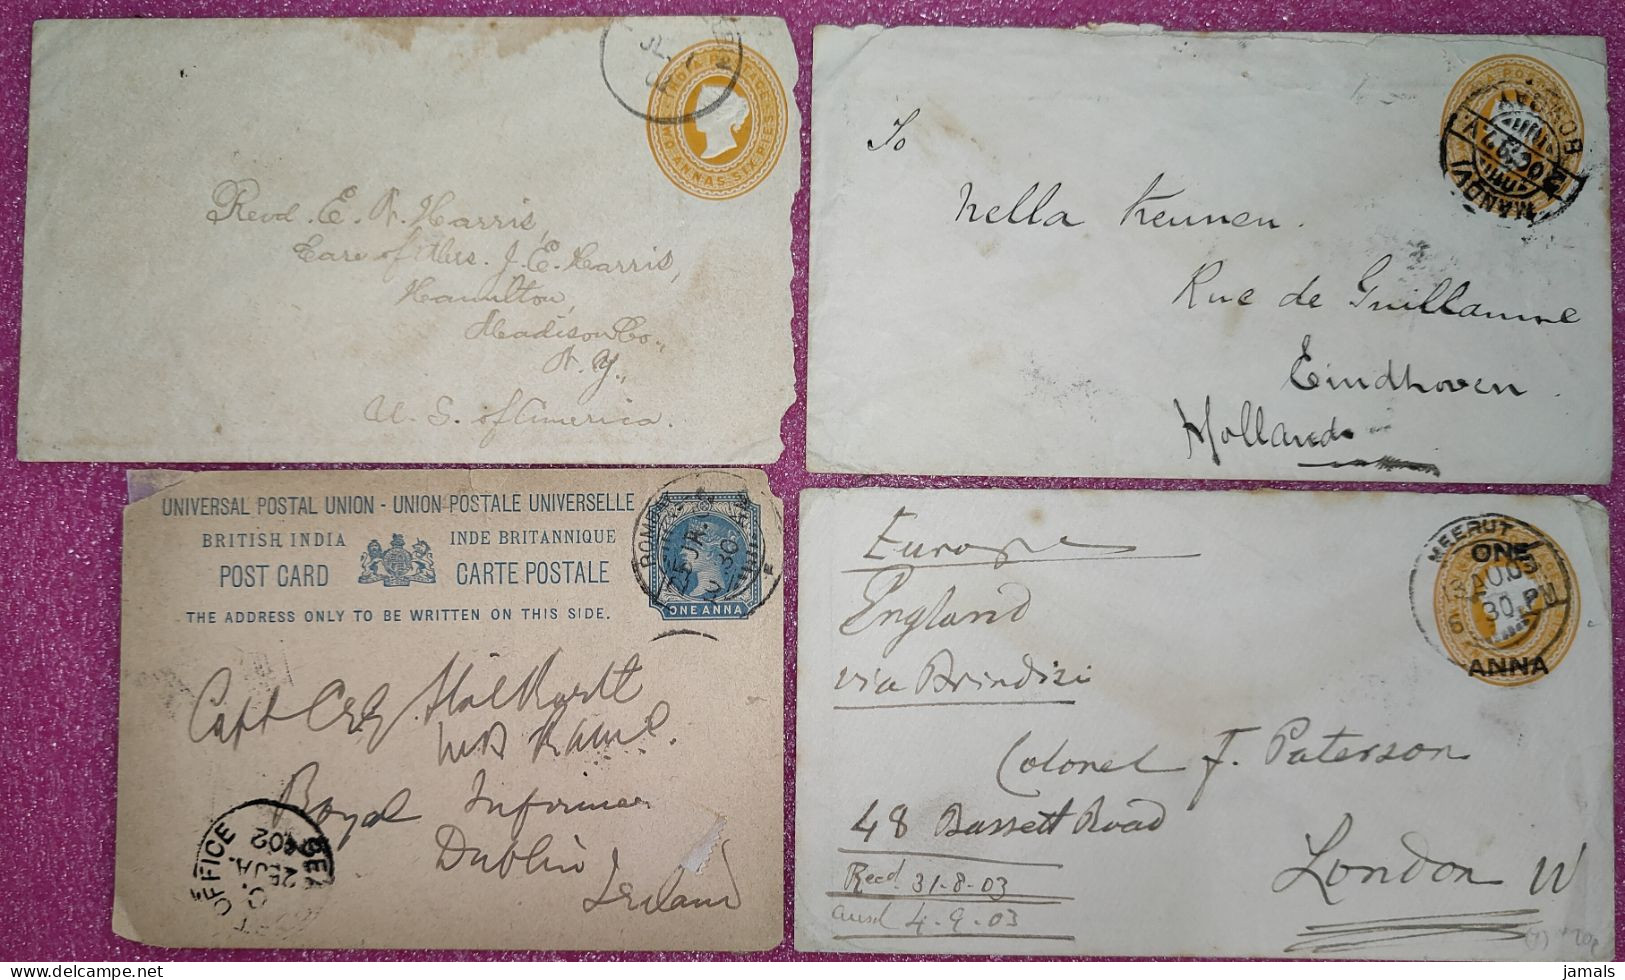 INDIA POSTAGE
TWO ANNAS SIX PIES
Revd. E. N. Harris,
Care of Mrs. J. E. Harris,
Hamilton,
Madison Co.,
N. Y.,
U. S. of America.
BOMBAY
2 OC 97
MANDVI
To
Nella Keunen.
Rue de Guillaume
Eindhoven
Holland
UNIVERSAL POSTAL UNION - UNION POSTALE UNIVERSELLE
BRITISH INDIA INDE BRITANNIQUE
POST CARD CARTE POSTALE
THE ADDRESS ONLY TO BE WRITTEN ON THIS SIDE.
ONE ANNA
BOMBAY
Capt
Royal
Dublin
Ireland
OFFICE
02
MEERUT
ONE
AU 03
30 PM
ANNA
Europe
England
via Brindisi
Colonel F. Paterson
48 Bassett Road
London W
Recd. 31-8-03
ansd 4-9-03
jamals